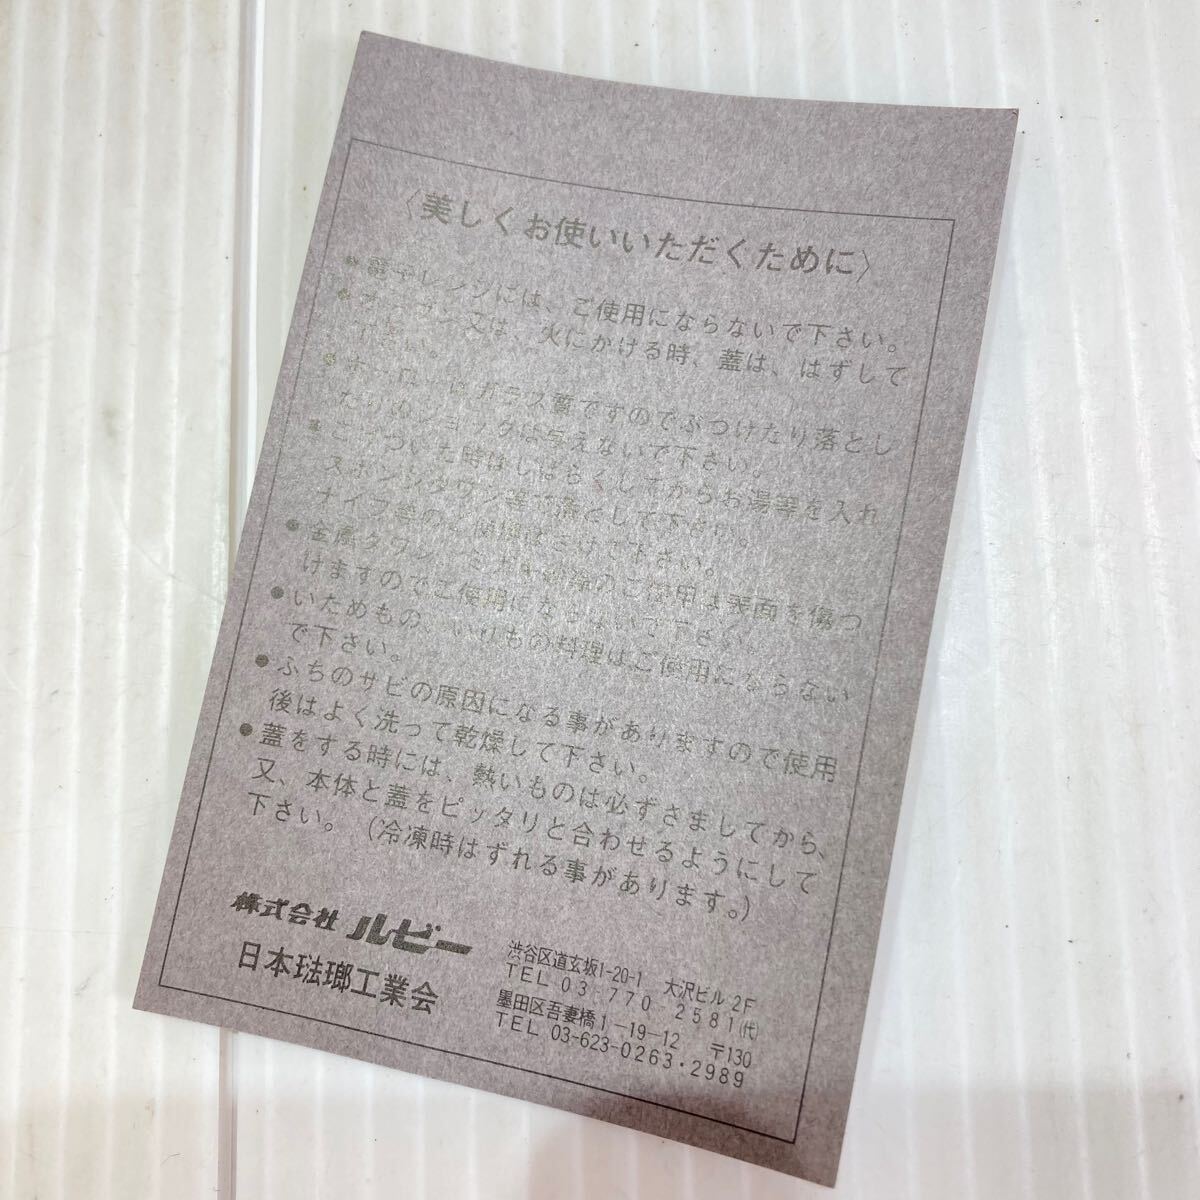 〈美しくお使いいただくために〉
● 電子レンジには、ご使用にならないで下さい。
● オーブン又は、火にかける時、蓋は、はずして
下さい。
● ホーローはガラス質ですのでぶつけたり落とし
たりのショックは与えないで下さい。
● こげついた時はしばらくしてからお湯等を入れ
スポンジタワシ等で落として下さい。
ナイフ等のご使用はさけて下さい。
● 金属タワシ、ミガキ粉等のご使用は表面を傷つ
けますのでご使用にならないで下さい。
● いためもの、いりもの料理はご使用にならない
で下さい。
● ふちのサビの原因になる事がありますので使用
後はよく洗って乾燥して下さい。
● 蓋をする時には、熱いものは必ずさましてから、
又、本体と蓋をピッタリと合わせるようにして
下さい。(冷凍時はずれる事があります。)
株式会社 ルビー
渋谷区道玄坂1-20-1 大沢ビル2F
TEL 03・770・2581(代)
日本琺瑯工業会
墨田区吾妻橋1-19-12 〒130
TEL 03-623-0263・2989